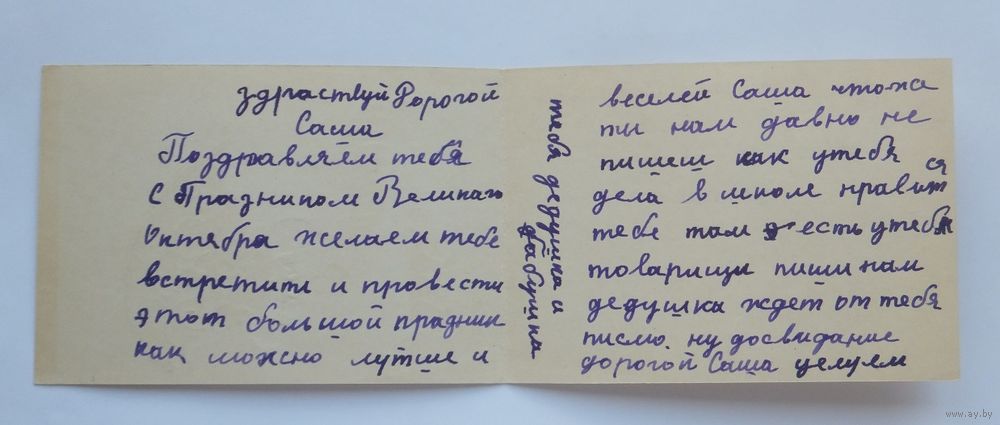 здраствуй Дорогой
Саша
Поздравляем тебя
С Празником Великаго
Октября желаем тебе
встретити и провести
этот большой празник
как можно лутше и
веселей Саша что-же
ти нам давно не
пишеш как утебя
дела в школе нравится
тебе там есть утебя
товарищи пиши нам
дедушка ждет от тебя
писмо. ну досвидание
дорогой Саша целуем
тебя дедушка и
бабушка
www.ay.by